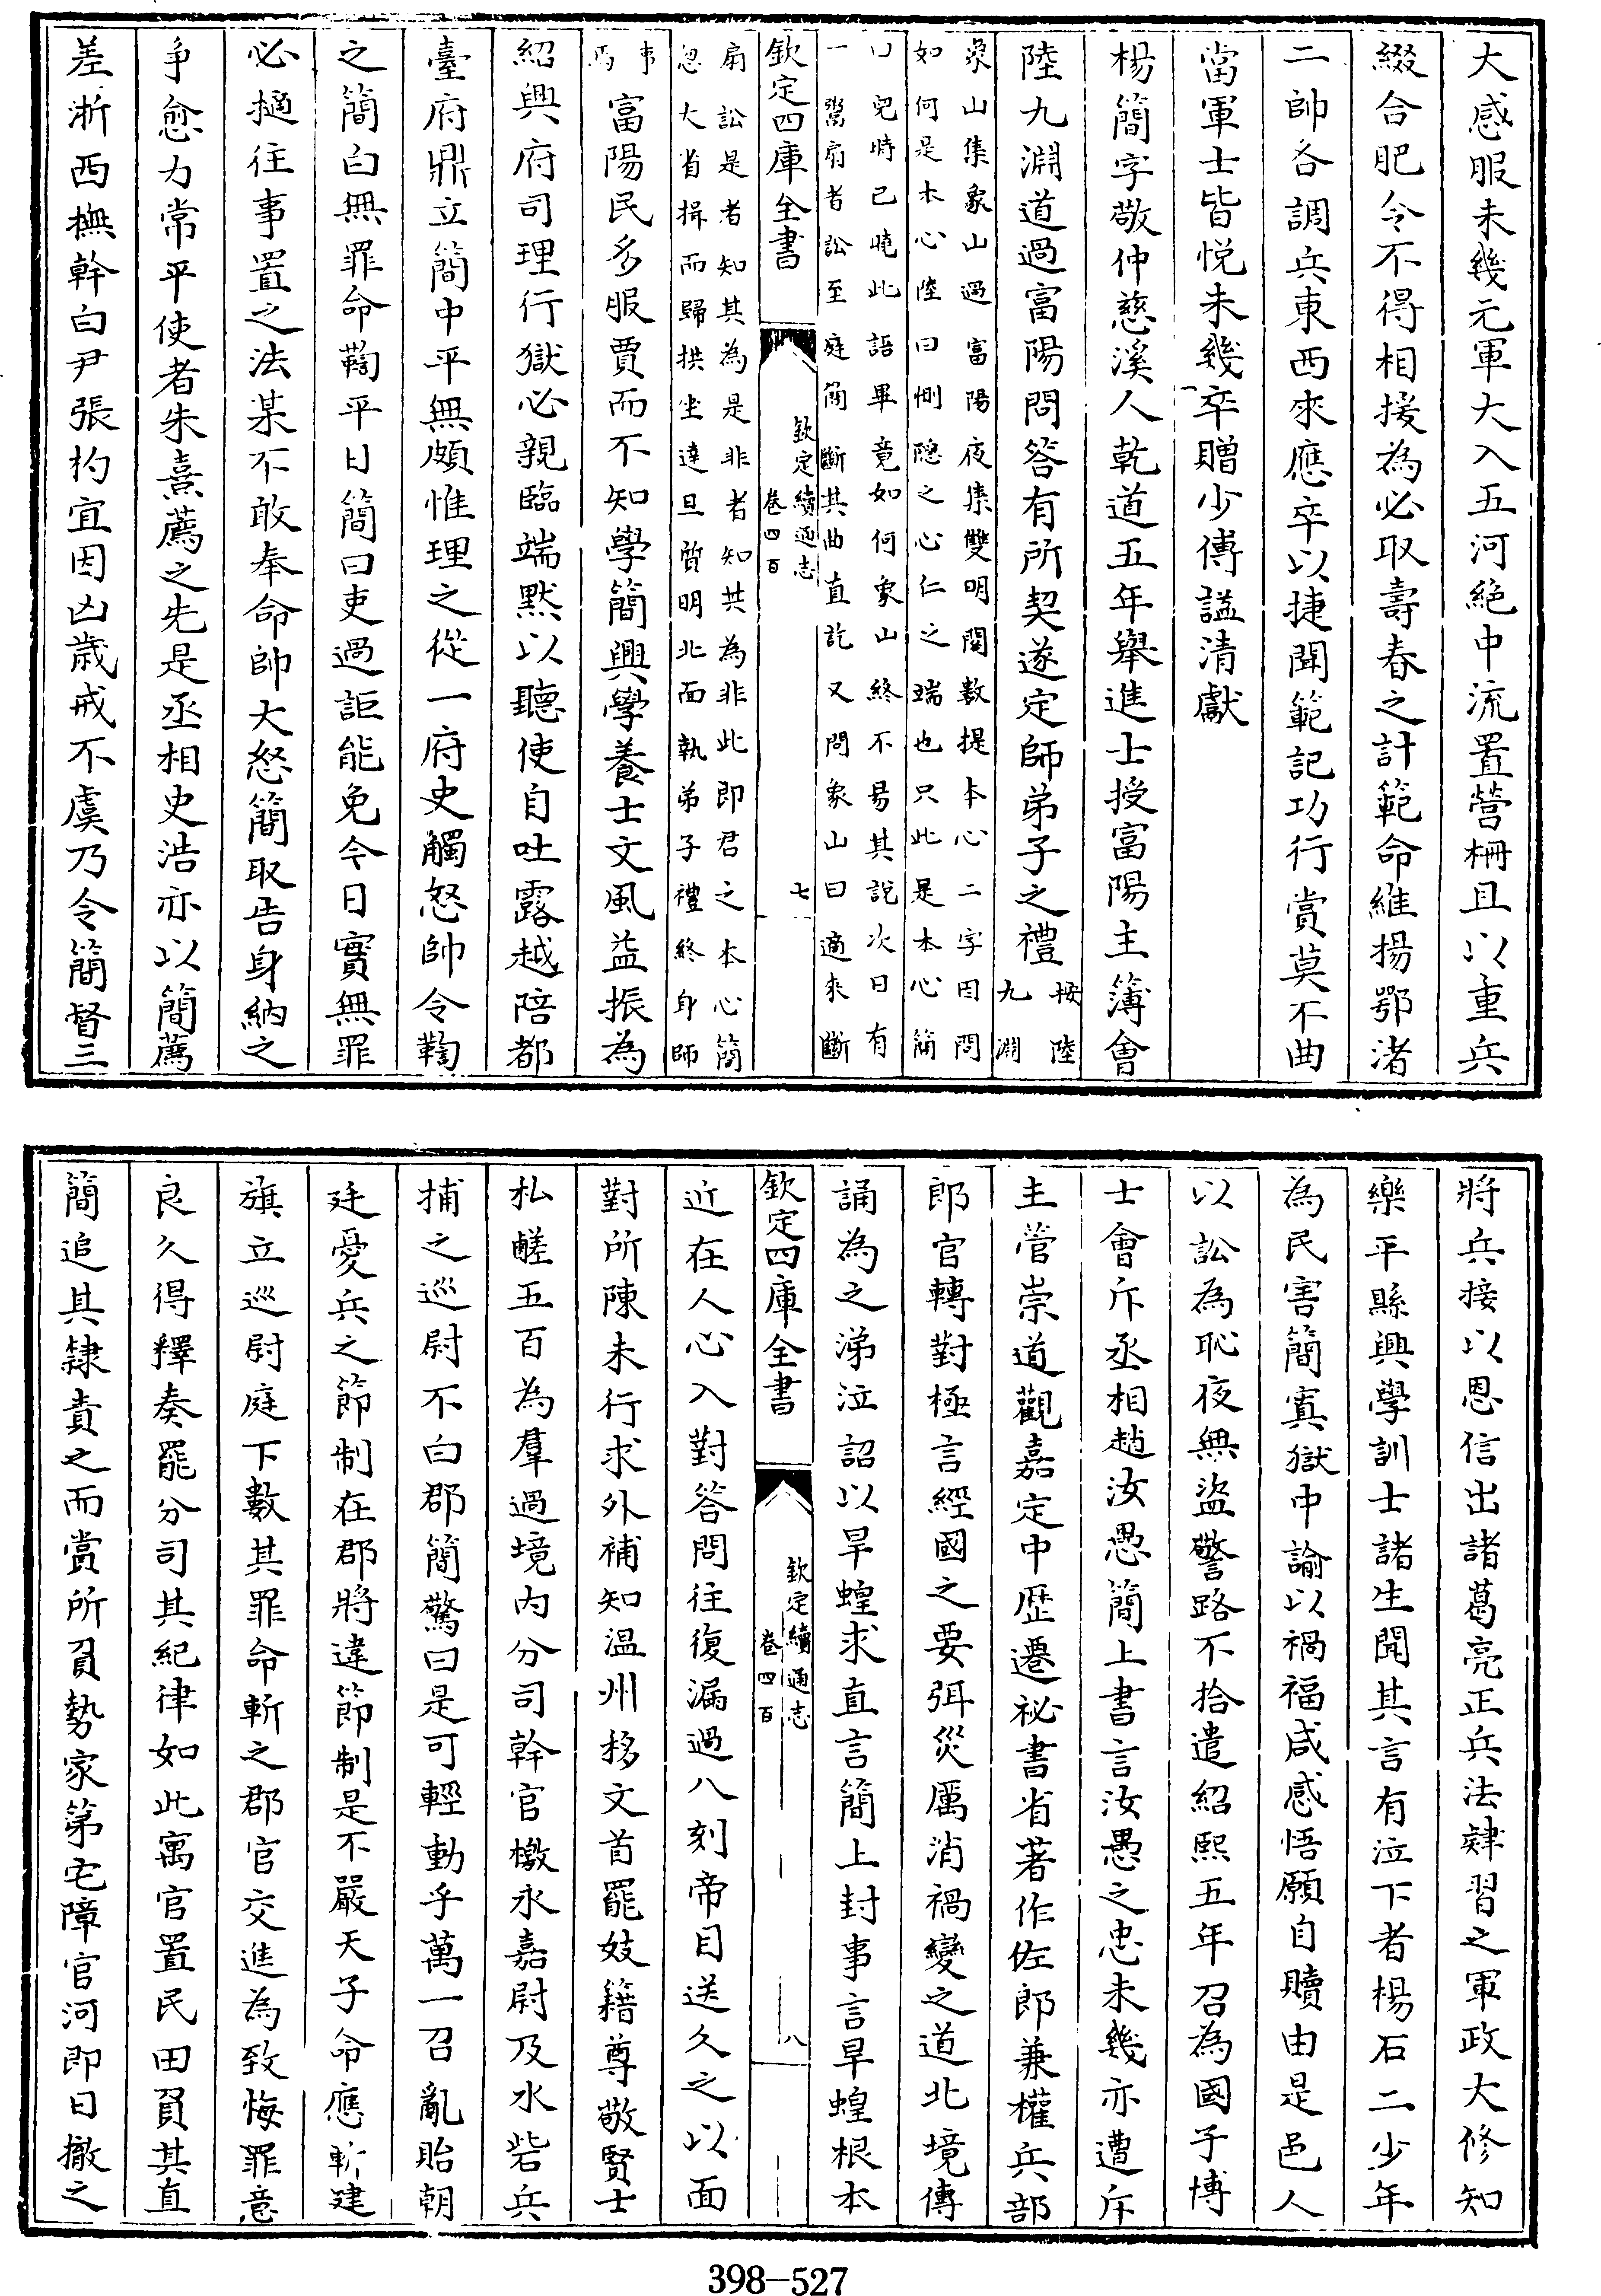 大感服未幾元軍大入五河絶中流置營柵且以重兵
綴合肥令不得相援為必取壽春之計範命維揚鄂渚
二帥各調兵東西來應卒以捷聞範記功行賞莫不曲
當軍士皆悅未幾卒贈少傅謚清獻
楊簡字敬仲慈溪人乾道五年舉進士授富陽主簿會
陸九淵道過富陽問答有所契遂定師弟子之禮
按陸
九淵
象山集象山過富陽夜集雙明閣數提本心二字因問
如何是本心陸曰惻隱之心仁之端也只此是本心簡
曰兒時已曉此語畢竟如何象山終不易其説次日有
一鬻扇者訟至庭簡斷其曲直訖又問象山曰適來斷
欽定四庫全書
欽定續通志
卷四百
七
扇訟是者知其為是非者知其為非此即君之本心簡
忽大省揖而歸拱坐達旦質明北面執弟子禮終身師
事
焉
富陽民多服賈而不知學簡興學養士文風益振為
紹興府司理行獄必親臨端黙以聽使自吐露越陪都
臺府鼎立簡中平無頗惟理之從一府史觸怒帥令鞫
之簡白無罪命鞫平日簡曰吏過詎能免今日實無罪
必擿往事置之法某不敢奉命帥大怒簡取告身納之
爭愈力常平使者朱熹薦之先是丞相史浩亦以簡薦
差浙西撫幹白尹張杓宜因凶歲戒不虞乃令簡督三
將兵接以恩信出諸葛亮正兵法肄習之軍政大修知
樂平縣興學訓士諸生聞其言有泣下者楊石二少年
為民害簡寘獄中諭以禍福咸感悟願自贖由是邑人
以訟為恥夜無盜警路不拾遺紹熙五年召為國子博
士會斥丞相趙汝愚簡上書言汝愚之忠未幾亦遭斥
主管崇道觀嘉定中歴遷祕書省著作佐郎兼權兵部
郎官轉對極言經國之要弭災厲消禍變之道北境傳
誦為之涕泣詔以旱蝗求直言簡上封事言旱蝗根本
欽定四庫全書
欽定續通志
卷四百
八
近在人心入對答問往復漏過八刻帝目送久之以面
對所陳未行求外補知溫州移文首罷妓籍尊敬賢士
私鹺五百為羣過境内分司幹官檄永嘉尉及水砦兵
捕之巡尉不白郡簡驚曰是可輕動乎萬一召亂貽朝
廷憂兵之節制在郡將違節制是不嚴天子命應斬建
旗立巡尉庭下數其罪命斬之郡官交進為致悔罪意
良久得釋奏罷分司其紀律如此寓官置民田負其直
簡追其隸責之而賞所負勢家第宅障官河即日撤之
398—527